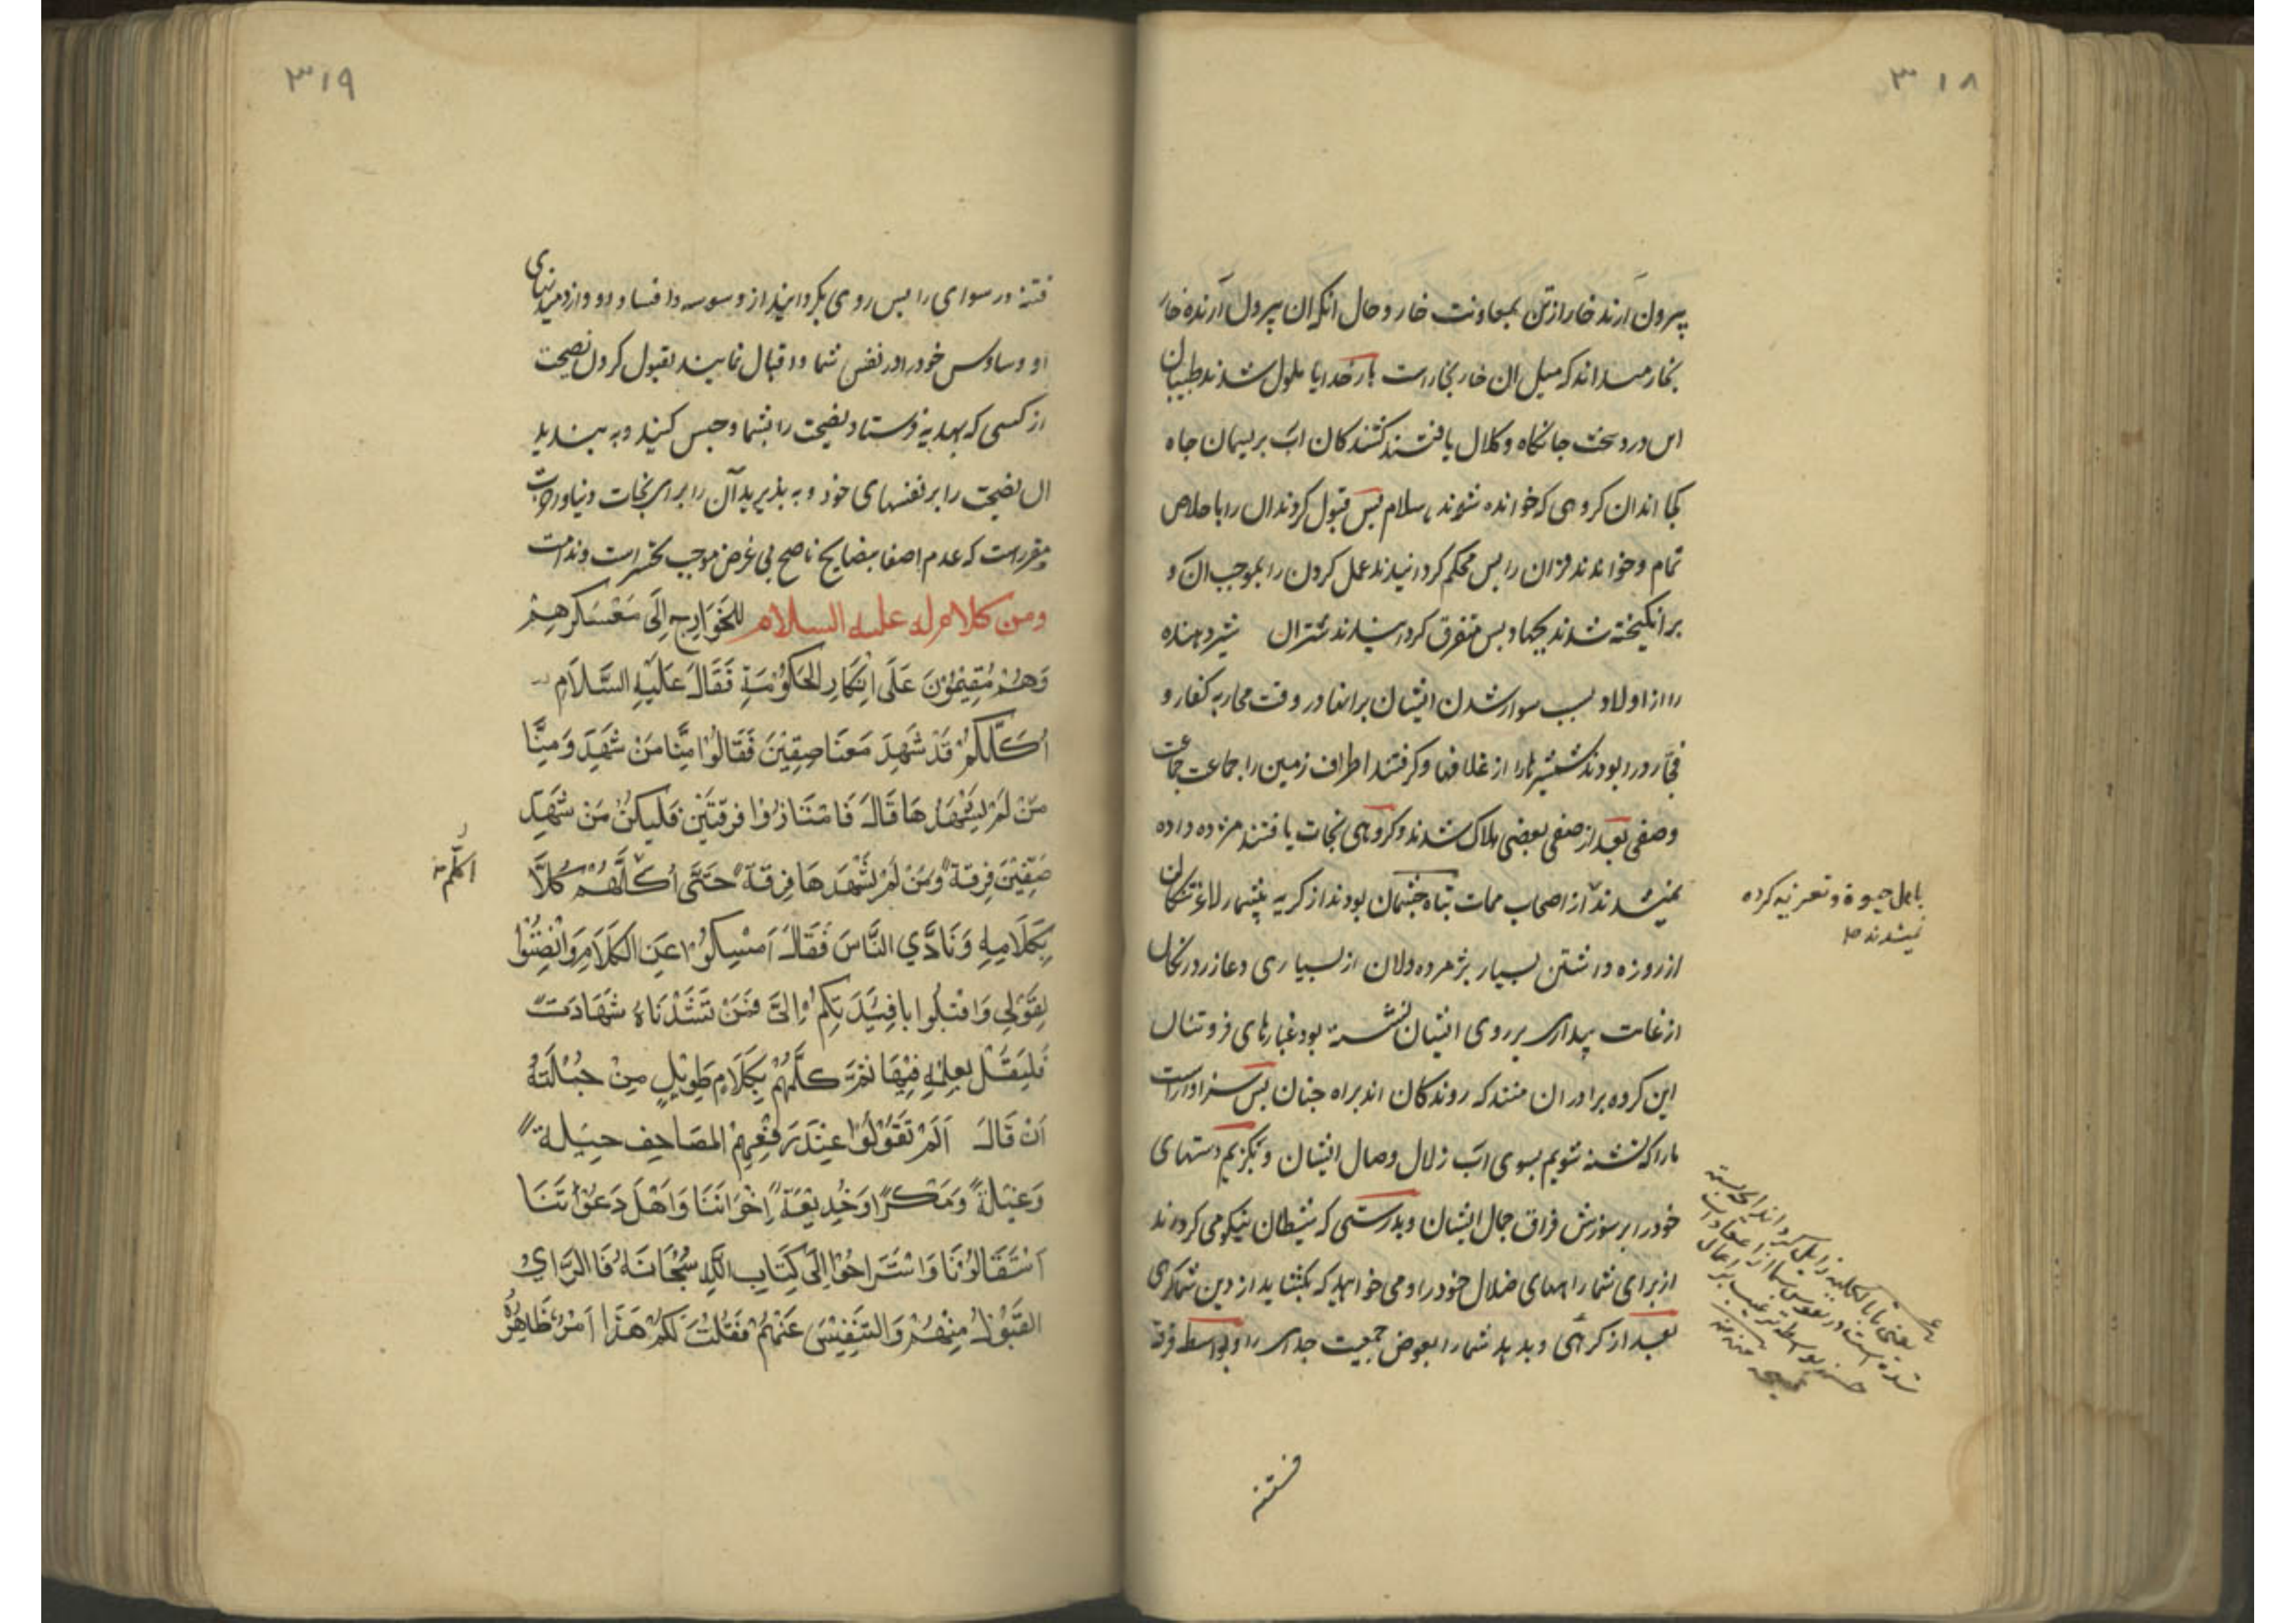 ۳۱۸
بیرون آرند خار از تن بمعاونت خار و حال انکه ان بیرون آرنده خار
بخار میداند که میل ان خار بخار است بار خدایا ملول شدند طبیبان
این درد سخت جانکاه و کلال یافتند کشندکان اب بریسمان چاه
کجا اند ان کروهی که خوانده شوند باسلام پس قبول کردند ان را باخلاص
تمام و خواندند قران را پس محکم کردانیدند عمل کردن را بموجب ان و
برانکیخته شدند بجهاد پس متفرق کردانیدند شتران شیر دهنده
را از اولاد بسبب سوار شدن ایشان برانها در وقت محاربه کفار و
فجار و ربودند شمشیرها را از غلافها و کرفتند اطراف زمین را جماعت جماعت
وصفی بعد از صفی بعضی هلاک شدند و کروهی نجات یافتند مژده داده
نمیشدند از اصحاب ممات تباه چشمان بودند از کریه بیشمار لاغر شکمان
از روزه داشتن بسیار پژمرده دلان از بسیاری دعا زرد رنکان
از غایت بیداری بر روی ایشان نشسته بود غبارهای فروتنان
این کروه برادران منند که روندکان اند براه جنان پس سزاوار است
ما را که تشنه شویم بسوی اب زلال وصال ایشان و بکزیم دستهای
خود را بر سوزش فراق جمال ایشان و بدرستی که شیطان نیکو می کرداند
از برای شما راههای ضلال خود را و می خواهد که بکشاید از دین شما کرهی
بعد از کرهی و بدهد شما را بعوض جمعیت جدایی را و بواسطه فرقة
باهل حیوة و تعزیه کرده
نمیشدند
فتنه
۳۱۹
فتنه و رسوای را پس روی بکردانید از وسوسه و افساد او و از دمیدنهای
او وساوس خود را در نفس شما و اقبال نمایید بقبول کردن نصیحت
از کسی که بهدیه فرستاد نصیحت را بشما و حبس کنید و به بندید
ان نصیحت را بر نفسهای خود و به پذیرید آن را برای نجات دنیا و اخرت
مقرر است که عدم اصغا بنصایح ناصح بی غرض موجب تحسر است و ندامت
ومن كلام له عليه السلام للخَوَارِجِ إِلَى مَعْسَكَرِهِمْ
وَهُمْ مُقِيْمُوْنَ عَلَى اِنْكَارِ الحَكُوْمَةِ فَقَالَ عَلَيْهِ السَّلَامِ
اَكُلُّكُمْ قَدْ شَهِدَ مَعَنَا صِفِّيْنَ فَقَالُوْا مِنَّا مَنْ شَهِدَ وَمِنَّا
مَنْ لَمْ يَشْهَدْهَا قَالَ فَامْتَازُوْا فِرْقَتَيْنِ فَلْيَكُنْ مَنْ شَهِدَ
صِفِّيْنَ فِرْقَةً وَمَنْ لَمْ يَشْهَدْهَا فِرْقَةً حَتَّى اُكَلِّمَهُمْ كُلًّا
اكلّم
بِكَلَامِهِ وَنَادَي النَّاسَ فَقَالَ اَمْسِكُوْا عَنِ الكَلَامِ وَانْصِتُوْا
لِقَوْلِي وَاقْبِلُوا بِافْئِدَتِكُمْ اِلَىَّ فَمَنْ نَشَدْنَاهُ شَهَادَةً
فَليَقُلْ بِعِلْمِهِ فِيْهَا ثُمَّ كَلَّمَهُمْ بِكَلَامٍ طَوِيْلٍ مِنْ جُمْلَتِهِ
اَنْ قَالَ اَلَمْ تَقُوْلُوْا عِنْدَ رَفْعِهِمُ المَصَاحِفَ حِيْلَةً
وَغِيْلَةً وَمَكْرًا وَخَدِيْعَةً اِخْوَانُنَا وَاَهْلُ دَعْوَتِنَا
اسْتَقَالُوْنَا وَاسْتَرَاحُوْا اِلَى كِتَابِ اللهِ سُبْحَانَهُ فَالرَّايُ
القَبُوْلُ مِنْهُمْ وَالتَّنْفِيْسُ عَنْهُمْ فَقُلْتُ لَكُمْ هَذَا اَمْرٌ ظَاهِرُهُ